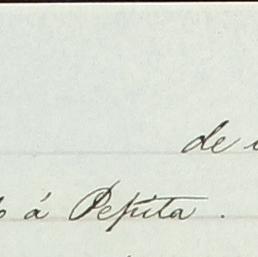 de
á Pepita.